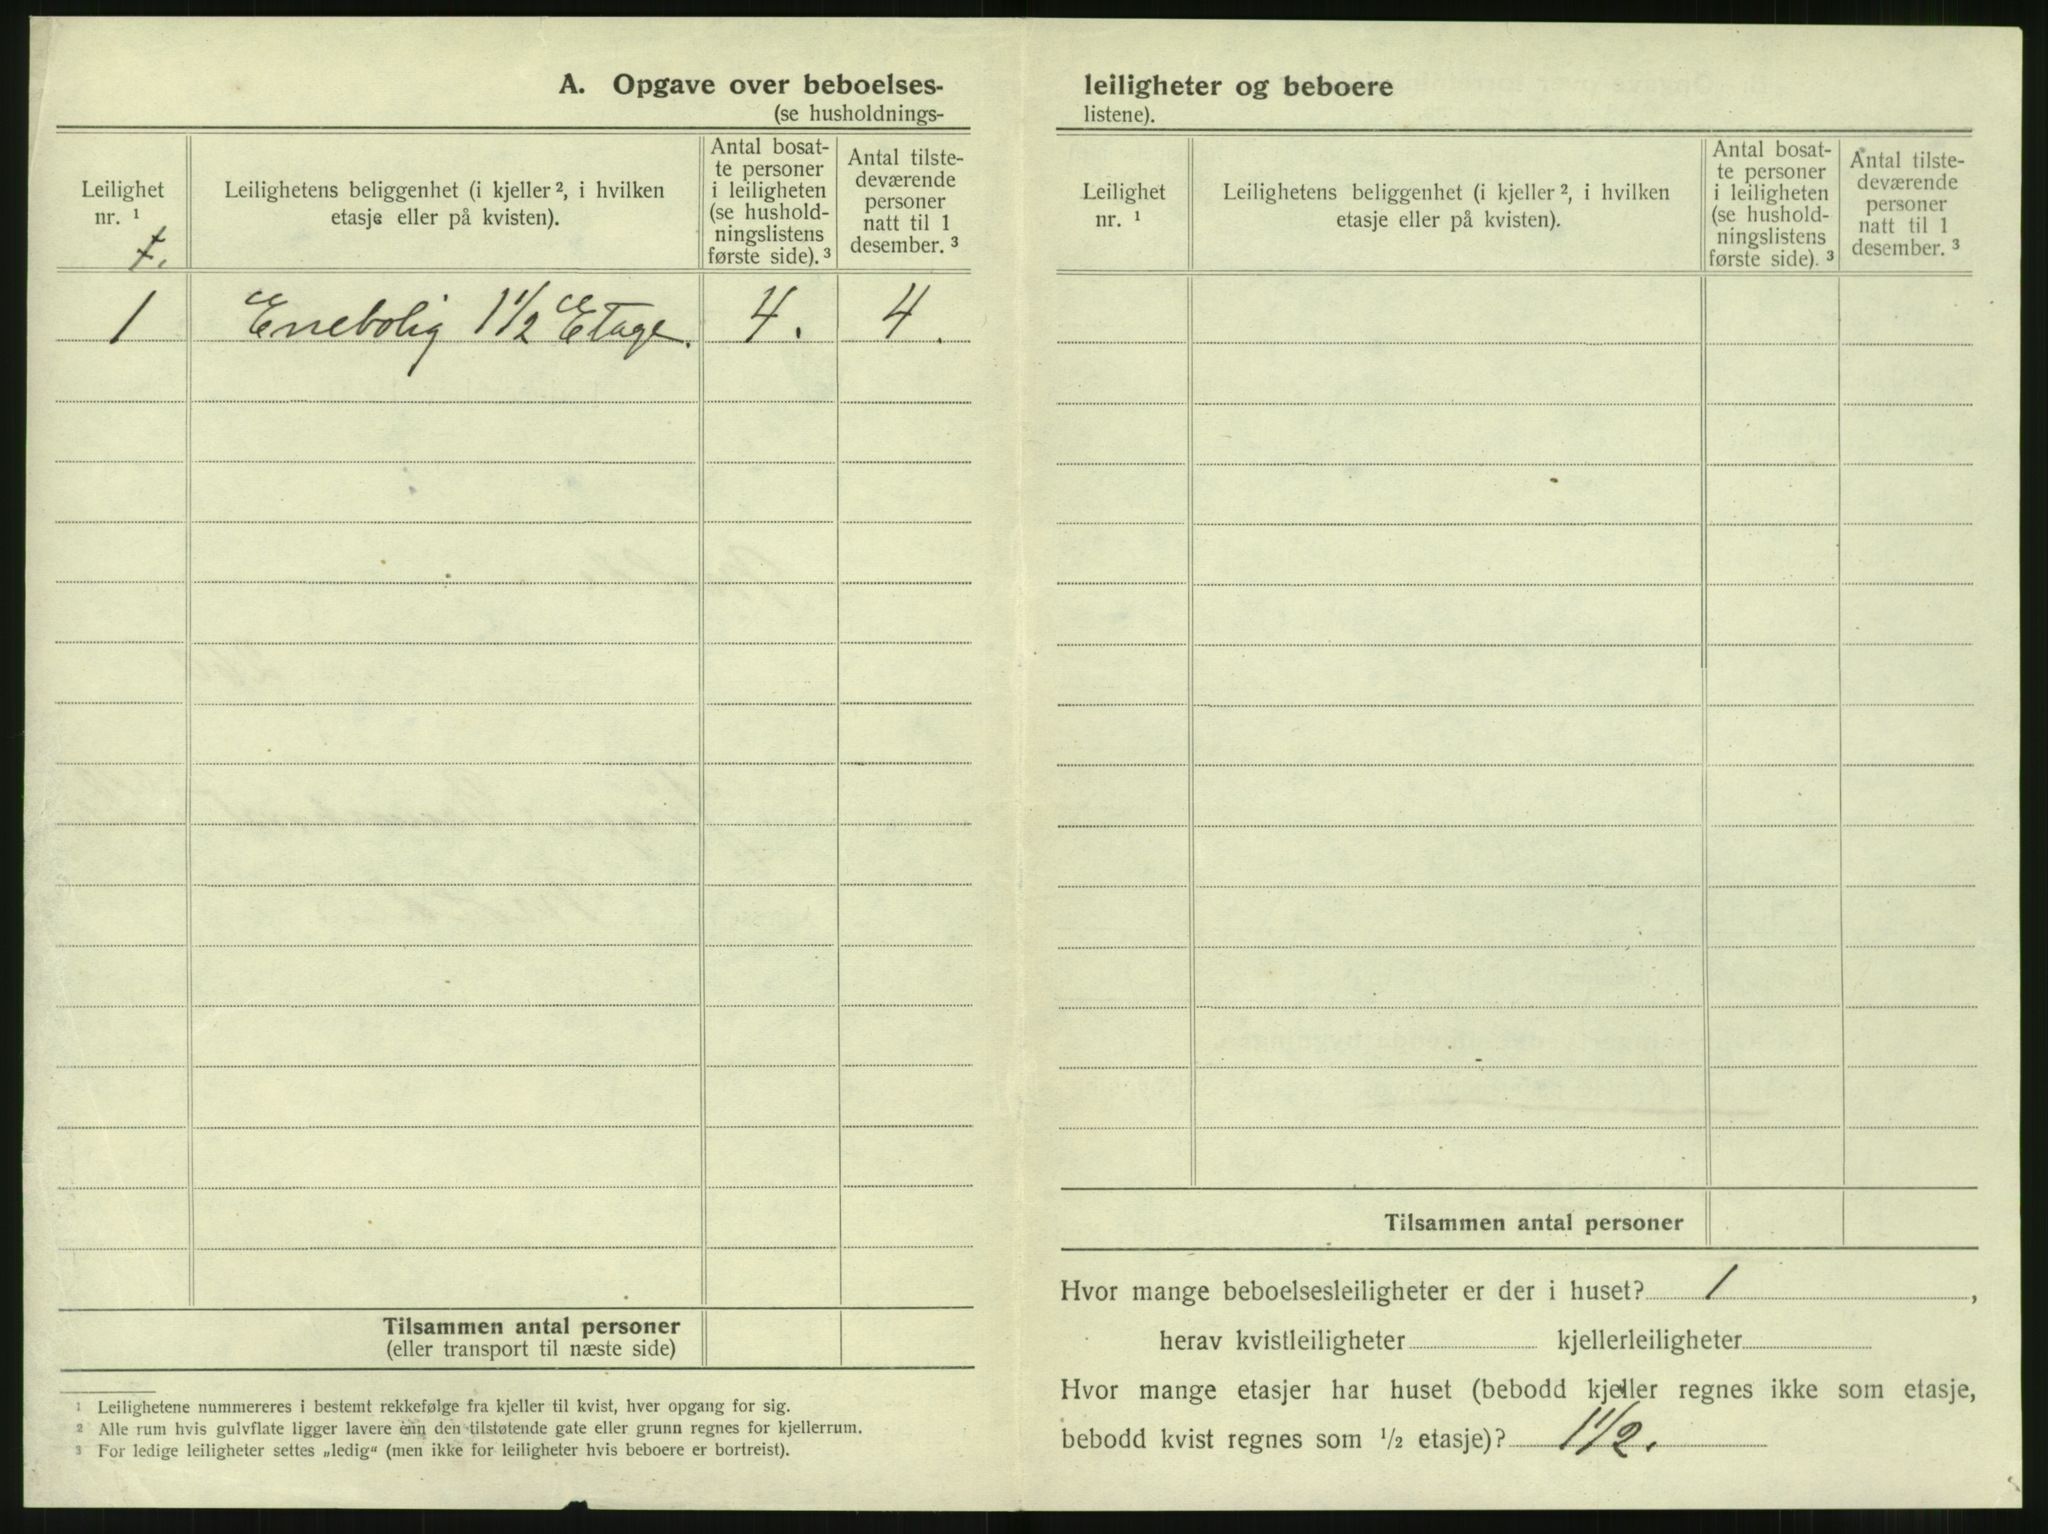 A. Opgave over beboelses-
(se husholdnings-
Leilighet
nr. ¹
Leilighetens beliggenhet (i kjeller ², i hvilken
etasje eller på kvisten).
Antal bosat-
te personer
i leiligheten
(se hushold-
ningslistens
første side). ³
Antal tilste-
deværende
personer
natt til 1
desember. ³
1 Enebolig 1 1/2 Etage. 4. 4.
Tilsammen antal personer
(eller transport til næste side)
¹ Leilighetene nummereres i bestemt rekkefølge fra kjeller til kvist, hver opgang for sig.
² Alle rum hvis gulvflate ligger lavere enn den tilstøtende gate eller grunn regnes for kjellerrum.
³ For ledige leiligheter settes „ledig“ (men ikke for leiligheter hvis beboere er bortreist).
leiligheter og beboere
listene).
Leilighet
nr. ¹
Leilighetens beliggenhet (i kjeller ², i hvilken
etasje eller på kvisten).
Antal bosat-
te personer
i leiligheten
(se hushold-
ningslistens
første side). ³
Antal tilste-
deværende
personer
natt til 1
desember. ³
Tilsammen antal personer
Hvor mange beboelsesleiligheter er der i huset? 1,
herav kvistleiligheter kjellerleiligheter
Hvor mange etasjer har huset (bebodd kjeller regnes ikke som etasje,
bebodd kvist regnes som 1/2 etasje)? 1 1/2.